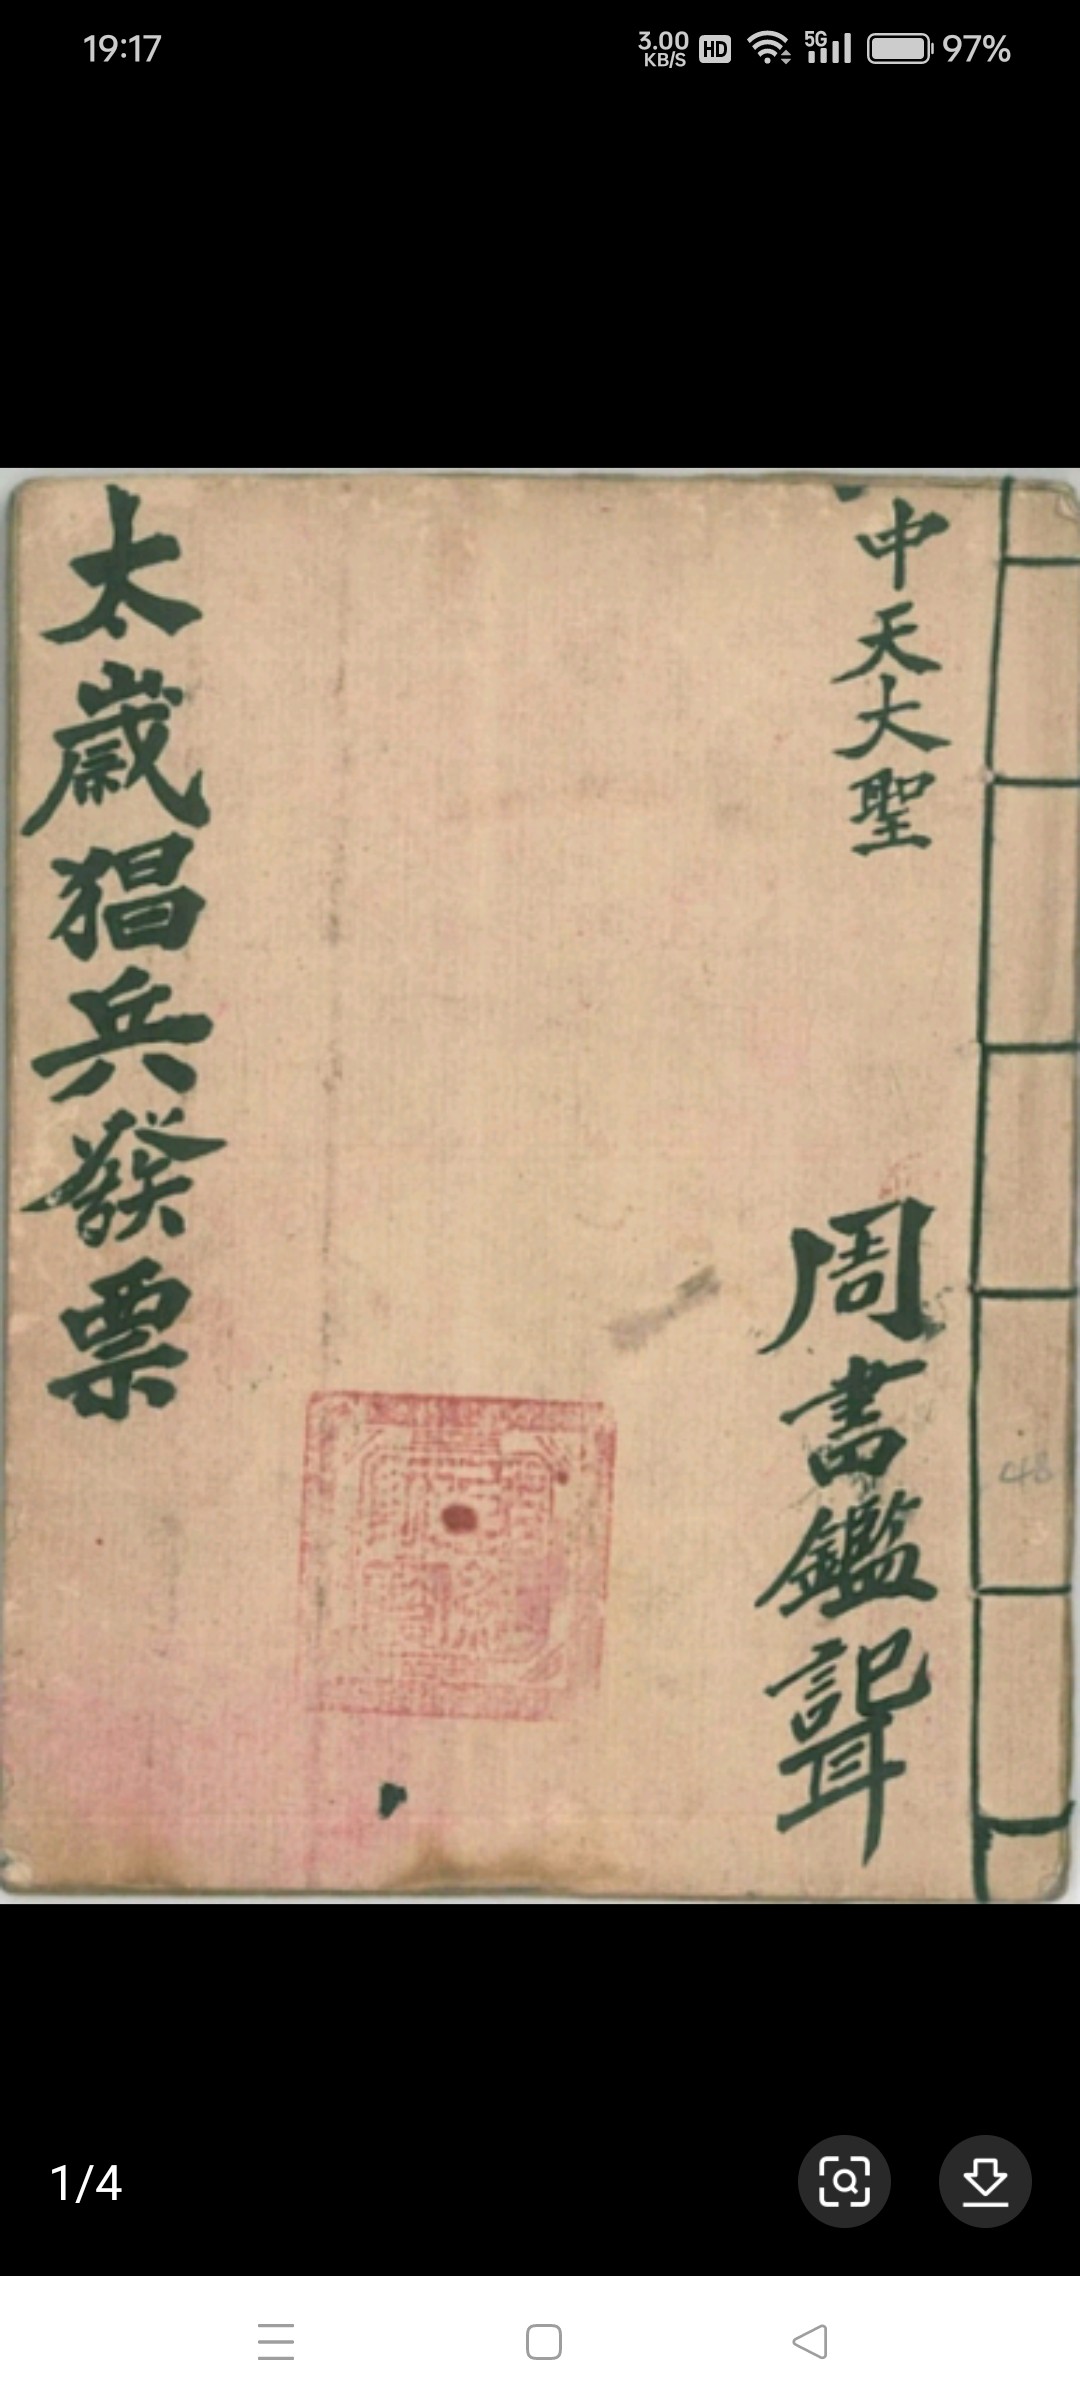 19:17
3.00 KB/S HD 5G 97%
中天大聖
周書鑑記
太歲猖兵發票
48
1/4